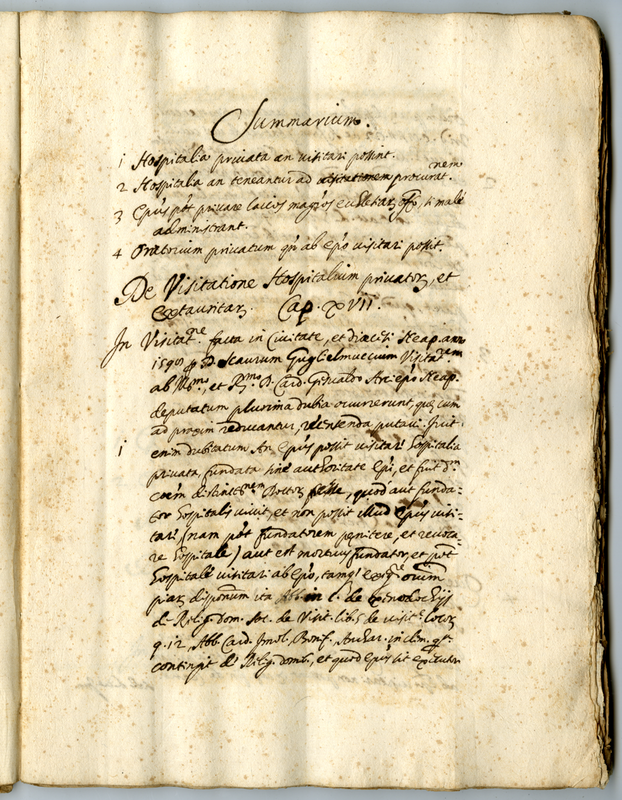 Summarium.
1 Hospitalia privata an visitari possint.
2 Hospitalia an teneantur ad visitationem procurat.nem
3 Ep̃us põt privare laicos mag̃ros eccl̃iarʒ offo, si malè
administrant.
4 Oratorium privatum qñ ab ep̃o visitari possit.
De Visitatione Hospitalium privatorʒ, et
extauritarʒ. Cap. XVII.
In Visitat.ne facta in Civitate, et diœcesi Neap. anno
159 D. Scaurum Guglielmuccium Visitat.
ab Ill.mo, et R.mo D. Card. Gesualdo Archiep̃o Neap.
deputatum plurima dubia occurrerunt, quæ cum
ad praxim reducantur, recensenda putavi. Fuit
1 enim dubitatum An Ep̃us possit visitare hospitalia
privata, fundata sine authoritate Ep̃i, et fuit d.
cum distinct.nem Doctorʒ esse, quod aut funda-
tor hospitalis vivit, et non possit illud Ep̃us visi-
tari (nam põt fundatorem penitere, et revoca-
re hospitale) aut est mortuus fundator, et põt
hospitale visitari ab ep̃o, tamq̃ exeq. omnium
piarʒ disponum ita Abb. in c. de Xenodochijs
de Relig. dom. de Visit. lib. 5 de visit. locorʒ
q. 12 Abb. Card. Imol. Bonif. Anchar. in clem. q̃
contingit de Relig. domib., et quod Ep̃us sit executor